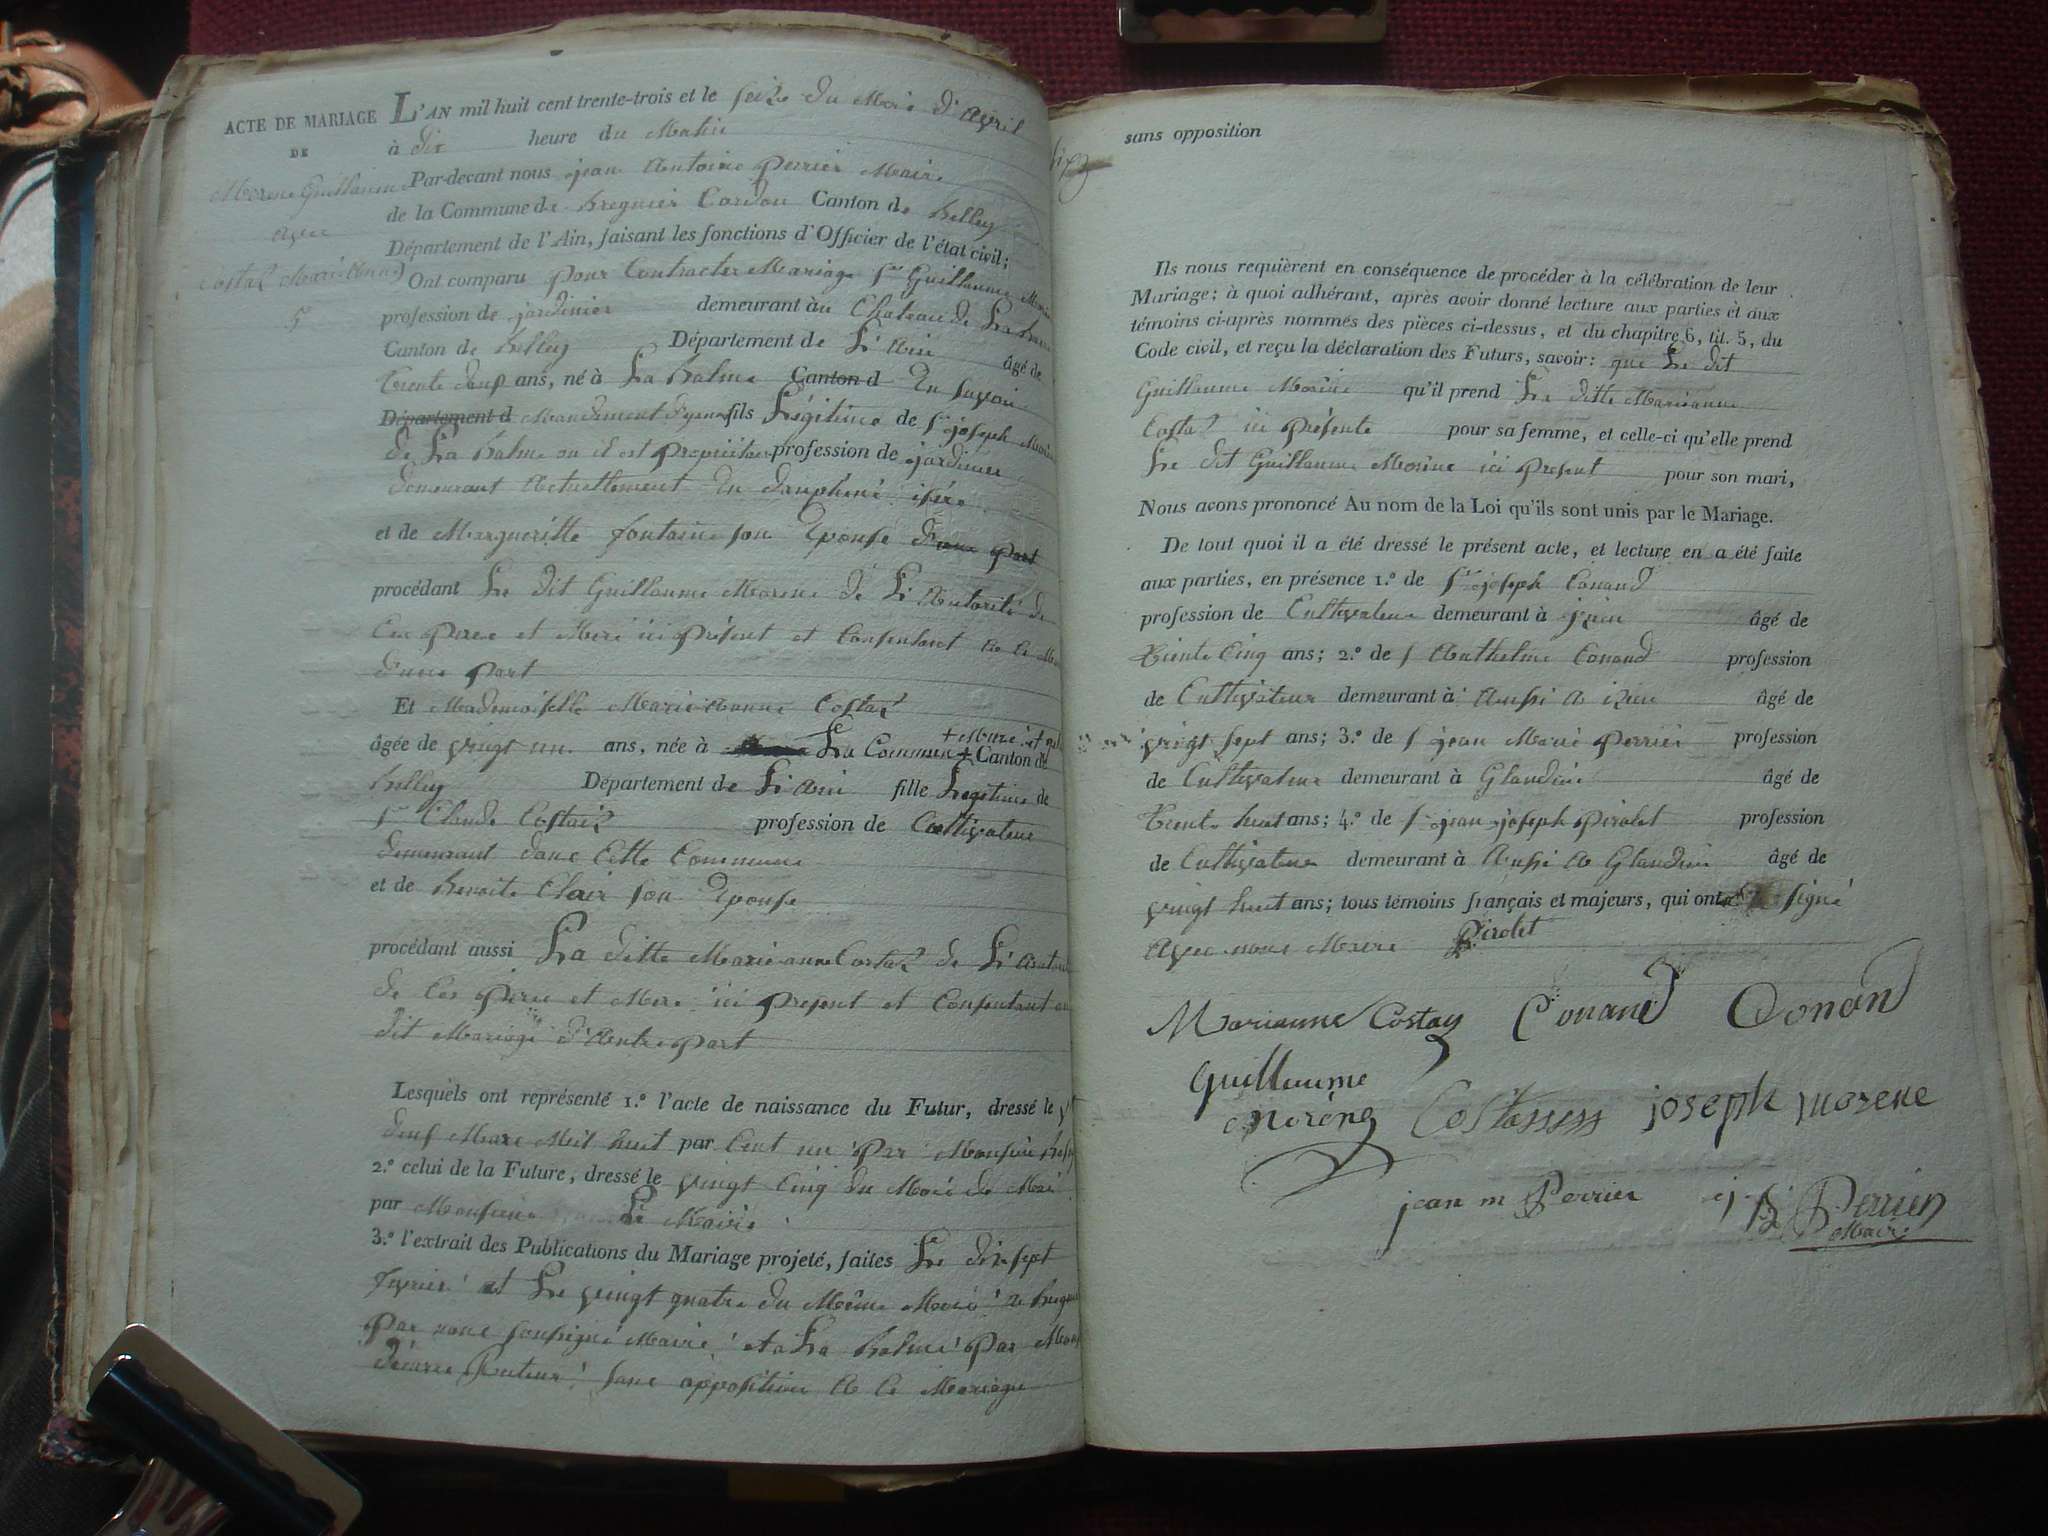 ACTE DE MARIAGE
DE
Morene Guillaume
avec
Costaz Marie Anne
5
L'AN mil huit cent trente-trois et le seize du Mois d'avril
à dix heure du Matin
Par-devant nous jean Antoine Perrier Maire
de la Commune de Bregnier Cordon Canton de Belley
Département de l'Ain, faisant les fonctions d'Officier de l'état civil;
Ont comparu pour Contracter Mariage Sr Guillaume
profession de jardinier demeurant au Chateau de La
Canton de Belley Département de L'ain âgé de
Trente deux ans, né à La Balme Canton d En Savoie
Département d Mandement d'yenne fils Légitime de Sr joseph
de La Balme ou il est Propriétaire profession de jardinier
demeurant Actuellement En dauphiné isère
et de Margueritte fontaine son Epouse d'une part
procédant Le dit Guillaume Morene de L'Autorité de
Ces Peres et Mere ici Présent et Consentant a Ce
d'une part
Et Mademoiselle Marie Anne Costaz
âgée de vingt un ans, née à La Commune + Canton de
Belley Département de L'ain fille Légitime de
Sr Claude Costaz profession de Cultivateur
demeurant dans Cette Commune
et de Benoite Clair son Epouse
procédant aussi La ditte Marie anne Costaz de L'
de Ces Pere et Mere ici Present et Consentant au
dit Mariage d'Autre part
Lesquels ont représenté 1.º l'acte de naissance du Futur, dressé le
deux Mars Mil huit par Cent un Par Monsieur
2.º celui de la Future, dressé le vingt Cinq du Mois de
par Monsieur Le Maire
3.º l'extrait des Publications du Mariage projeté, faites Le dix sept
fevrier et Le vingt quatre du Même Mois a
Par nous soussigné Maire et a La Balme Par
Sans opposition A Ce Mariage
sans opposition
Ils nous requièrent en conséquence de procéder à la célébration de leur
Mariage; à quoi adhérant, après avoir donné lecture aux parties et aux
témoins ci-après nommés des pièces ci-dessus, et du chapitre 6, tit. 5, du
Code civil, et reçu la déclaration des Futurs, savoir: que Le dit
Guillaume Morène qu'il prend La ditte Marianne
Costaz ici Présente pour sa femme, et celle-ci qu'elle prend
Le dit Guillaume Morène ici Présent pour son mari,
Nous avons prononcé Au nom de la Loi qu'ils sont unis par le Mariage.
De tout quoi il a été dressé le présent acte, et lecture en a été faite
aux parties, en présence 1.º de Sr joseph Conand
profession de Cultivateur demeurant à yzieu âgé de
Trente Cinq ans; 2.º de S Anthelme Conand profession
de Cultivateur demeurant à Aussi A izieu âgé de
vingt sept ans; 3.º de S jean Marie Perrier profession
de Cultivateur demeurant à Glandieu âgé de
Trente huit ans; 4.º de S jean joseph Pirolet profession
de Cultivateur demeurant à Aussi A Glandieu âgé de
vingt huit ans; tous témoins français et majeurs, qui ont signé
Avec nous Maire Pirolet
Marianne Costaz Conand Conan
guillaume
morène joseph morene
jean m Perrier Perrier
Maire